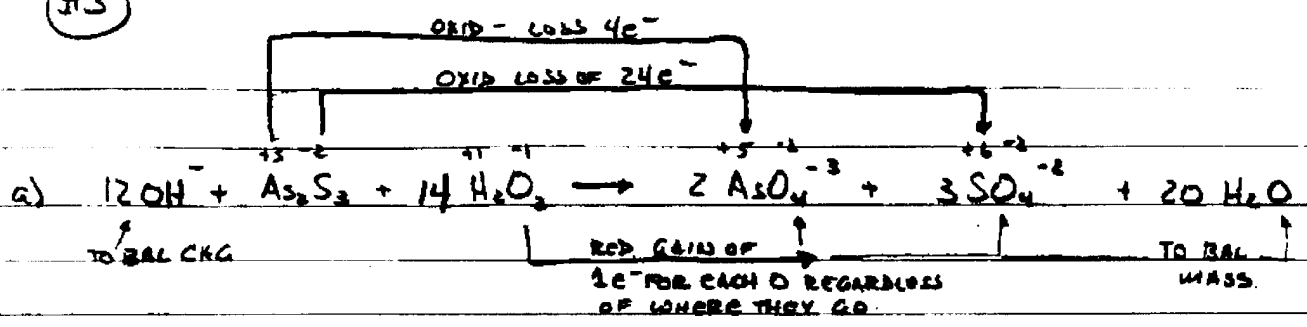 #3
OXID - LOSS 4e⁻
OXID LOSS OF 24e⁻
+3 -2 +1 -1 +5 -2 +6 -2
a) 12 OH⁻ + As₂S₃ + 14 H₂O₂ → 2 AsO₄⁻³ + 3 SO₄⁻² + 20 H₂O
TO BAL CHG
RED GAIN OF
1e⁻ FOR EACH O REGARDLESS
OF WHERE THEY GO.
TO BAL
MASS.